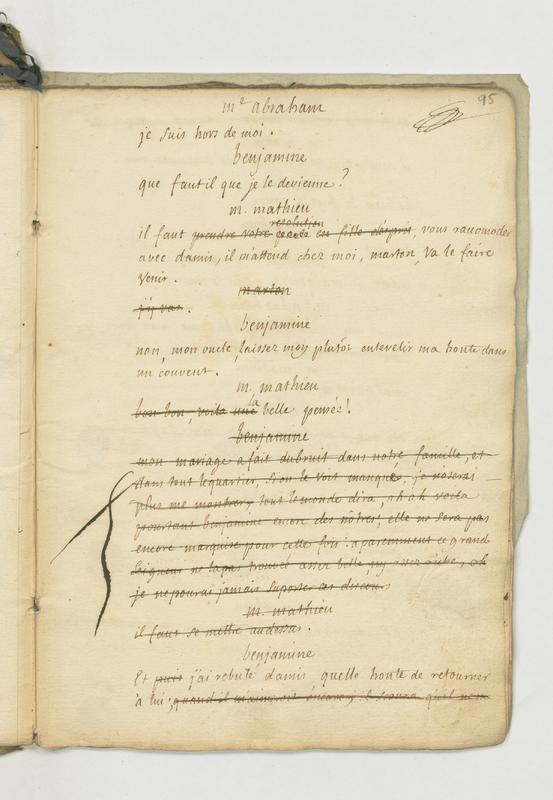 95
me abraham
je suis hors de moi.
benjamine
que faut il que je le devienne?
m. mathieu
resolution
il faut prendre votre en fille desprit, vous racomoder
avec damis, il m'attend chez moi, marton, va le faire
venir.
marton
j'y vas.
benjamine
non, mon oncle, laissez moy plutôt ensevelir ma honte dans
un couvent.
m. mathieu
la
bon bon, voila une belle pensée!
benjamine
mon mariage a fait du bruit dans notre famille, et
dans tout le quartier, si on le voit manqué, je n'oserai
plus me montrer, tout le monde dira, ah ah voila
pourtant benjamine encore des nôtres! elle ne sera pas
encore marquise pour cette fois: aparemment ce grand
seigneur ne la pas trouvée assez belle, ny assez riche, oh
je ne pourai jamais suporter ces discours
m. mathieu
il faut se mettre audessus.
benjamine
Et puis j'ai rebuté damis quelle honte de retourner
à lui; quand il m'aimeroit encore, il qu'il